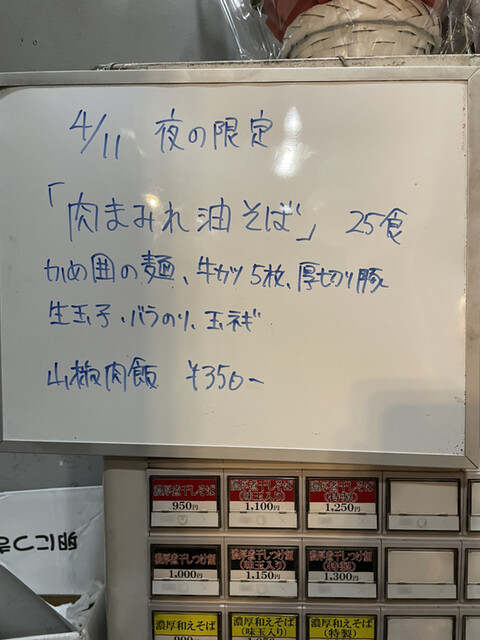 4/11 夜の限定
「肉まみれ油そば」 25食
かめ囲の麺、牛カツ5枚、厚切り豚
生玉子、バラのり、玉ネギ
山椒肉飯 ¥350-
濃厚煮干しそば
950円
濃厚煮干しそば
(味玉入り)
1,100円
濃厚煮干しそば
(特製)
1,250円
濃厚煮干しつけ麺
1,000円
濃厚煮干しつけ麺
(味玉入り)
1,150円
濃厚煮干しつけ麺
(特製)
1,300円
濃厚和えそば
濃厚和えそば
(味玉入り)
濃厚和えそば
(特製)